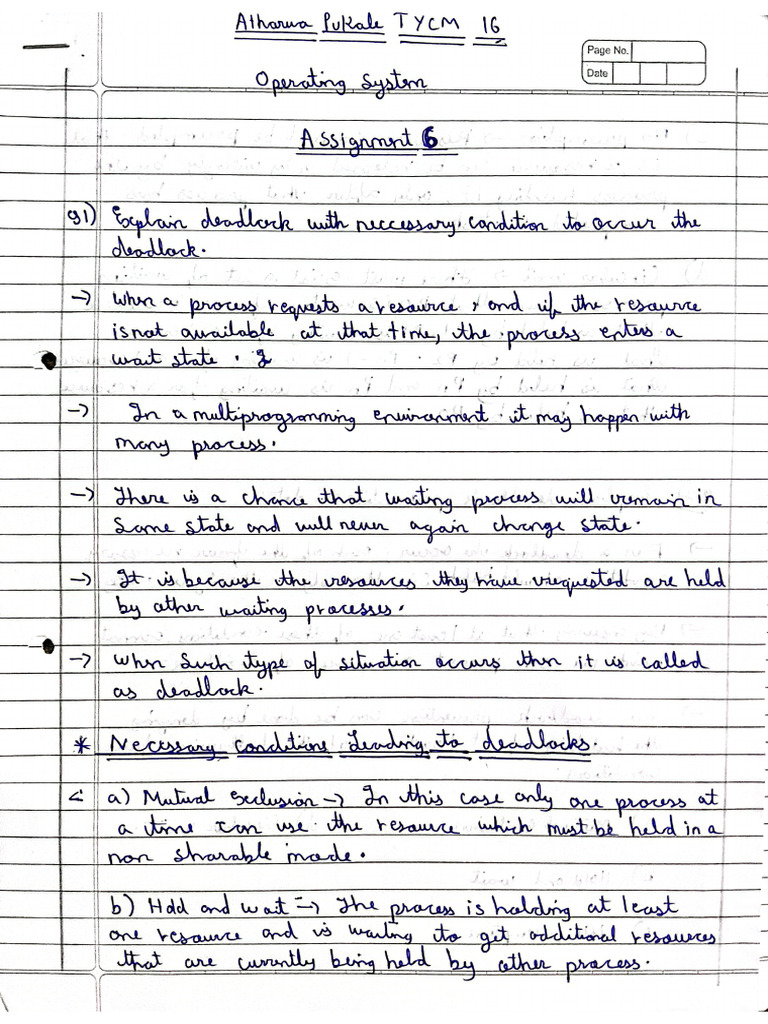 Atharva Pukale TYCM 16
Page No.
Date
Operating System
Assignment 6
Q1) Explain deadlock with neccessary condition to occur the
deadlock.
→ When a process requests a resource, and if the resource
is not available at that time, the process enters a
wait state.
→ In a multiprogramming environment it may happen with
many process.
→ There is a chance that waiting process will remain in
same state and will never again change state.
→ It is because the resources they have requested are held
by other waiting processes.
→ When such type of situation occurs then it is called
as deadlock.
* Necessary conditions leading to deadlocks.
a) Mutual Exclusion → In this case only one process at
a time can use the resource which must be held in a
non sharable mode.
b) Hold and wait → The process is holding at least
one resource and is waiting to get additional resources
that are currently being held by other process.